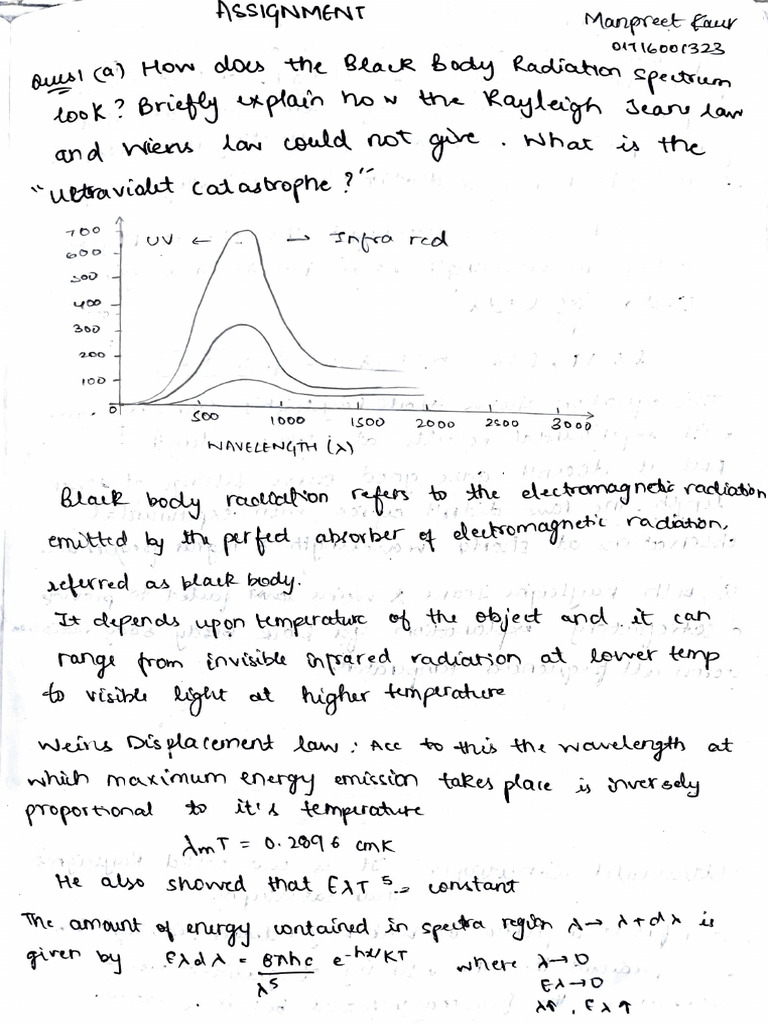 ASSIGNMENT
Manpreet Kaur
01716001323
Ques1 (a) How does the Black Body Radiation spectrum
look? Briefly explain how the Rayleigh Jeans law
and Wiens law could not give. What is the
"ultraviolet catastrophe?"
700
600
500
400
300
200
100
0
UV ← → Infra red
500 1000 1500 2000 2500 3000
WAVELENGTH (λ)
Black body radiation refers to the electromagnetic radiation
emitted by the perfect absorber of electromagnetic radiation,
referred as black body.
It depends upon temperature of the object and it can
range from invisible infrared radiation at lower temp
to visible light at higher temperature
Weins Displacement law: Acc to this the wavelength at
which maximum energy emission takes place is inversely
proportional to it's temperature
λmT = 0.2896 cmK
He also showed that EλT⁵ = constant
The amount of energy contained in spectra region λ → λ+dλ is
given by Eλdλ = 8πhc/λ⁵ e^-hν/KT where λ→0
Eλ→0
λ↑, Eλ↑